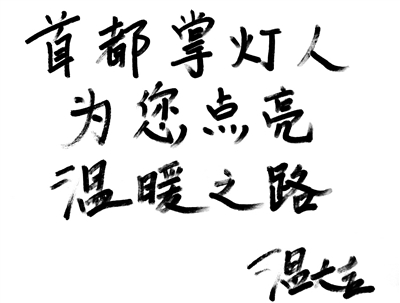 首都掌灯人
为您点亮
温暖之路
温大